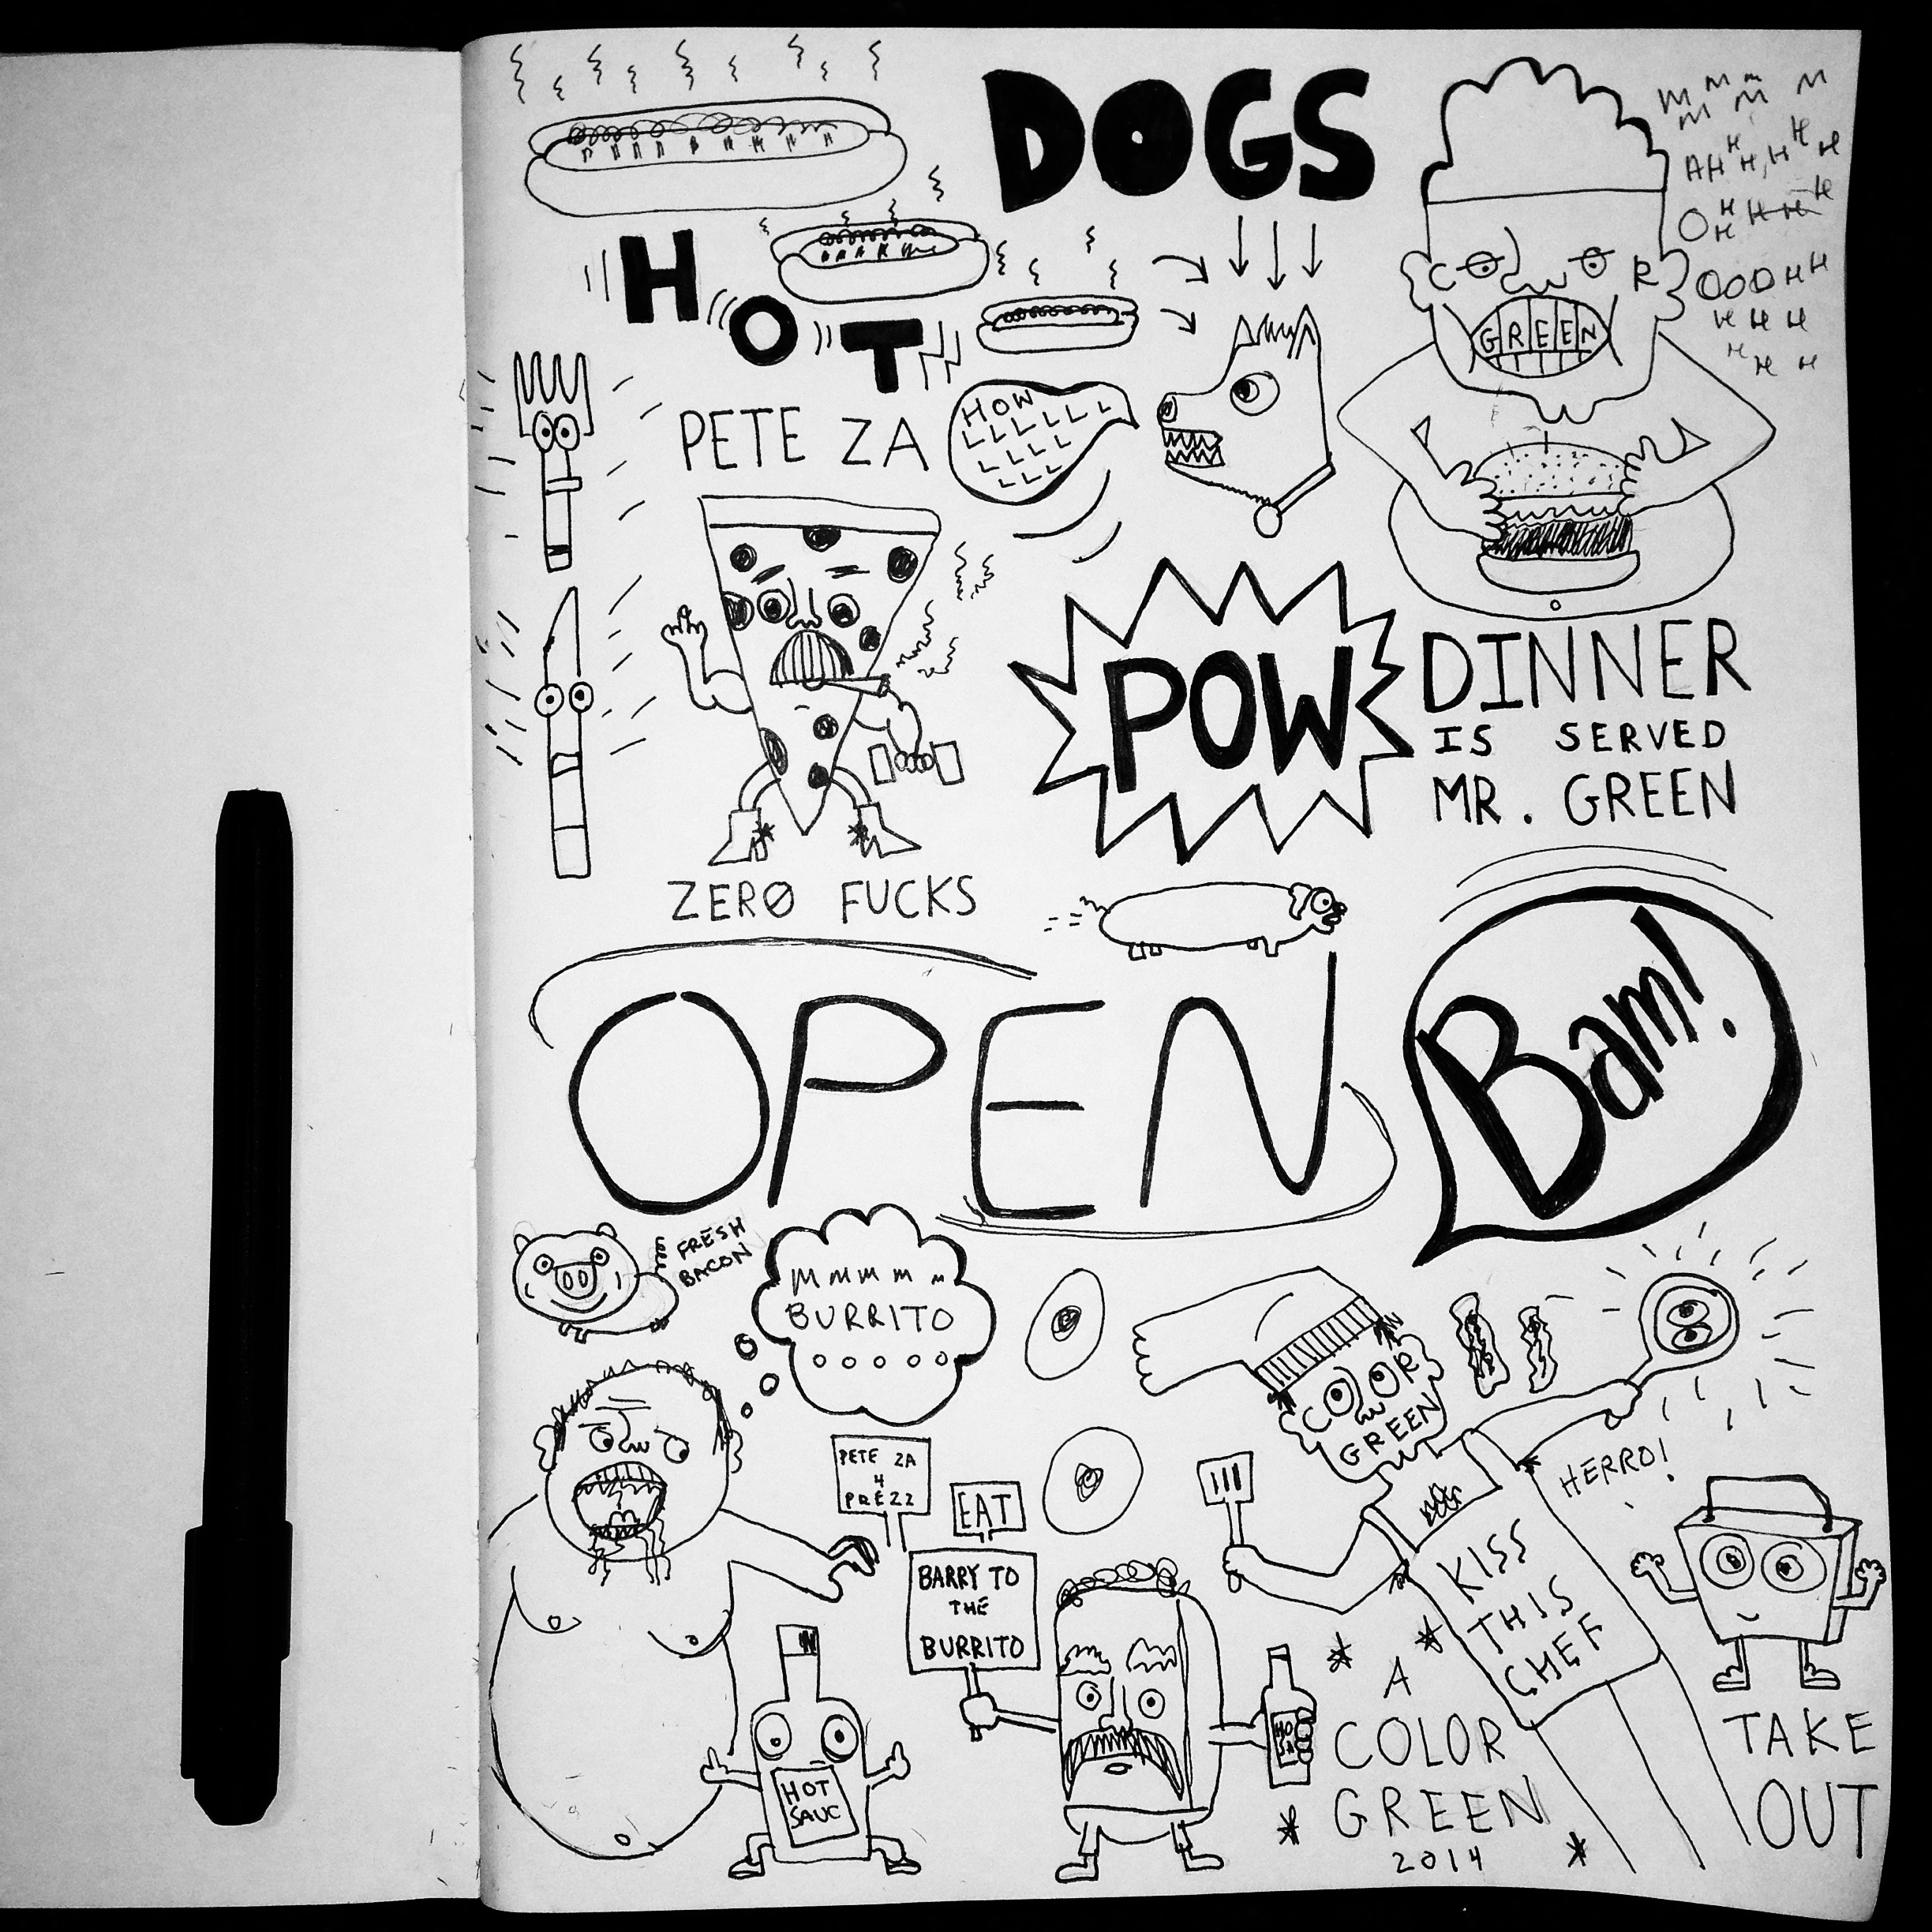 DOGS
HOT
M M M M M M
AHH H, H H H
OHH H H H
OOOHH
H H H
H H H
C O O R
GREEN
HOWLLLLL
LLLLL
LLLL
LL
PETE ZA
ZERØ FUCKS
POW
DINNER
IS SERVED
MR. GREEN
OPEN
Bam!
FRESH
BACON
MMMMM
BURRITO
COLOR
GREEN
HERRO!
PETE ZA
4
PREZZ
EAT
BARRY TO
THE
BURRITO
KISS
THIS
CHEF
HOT
SAUC
HO
SA
A
COLOR
GREEN
2014
TAKE
OUT